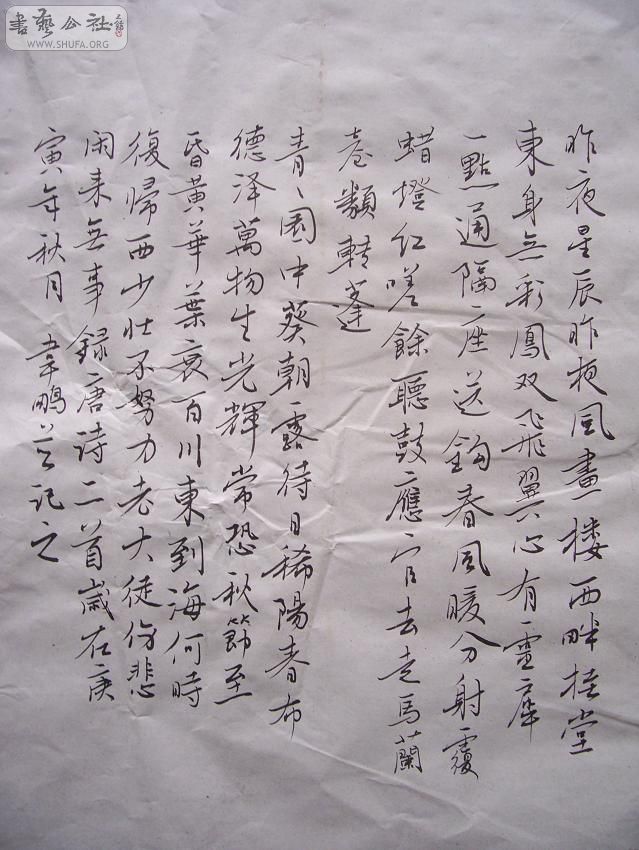 書藝公社
WWW.SHUFA.ORG
昨夜星辰昨夜风畫楼西畔桂堂
東身无彩鳳双飛翼心有一靈犀
一點通隔座送鈎春风暖分射覆
蜡燈红嗟餘聽鼓應官去走馬蘭
臺類轉蓬
青〻園中葵朝露待日稀陽春布
德泽萬物生光輝常恐秋節至
昏黄華葉衰百川東到海何時
復歸西少壮不努力老大徒伤悲
闲来無事録唐诗二首歲在庚
寅年秋月 韋鵬记之